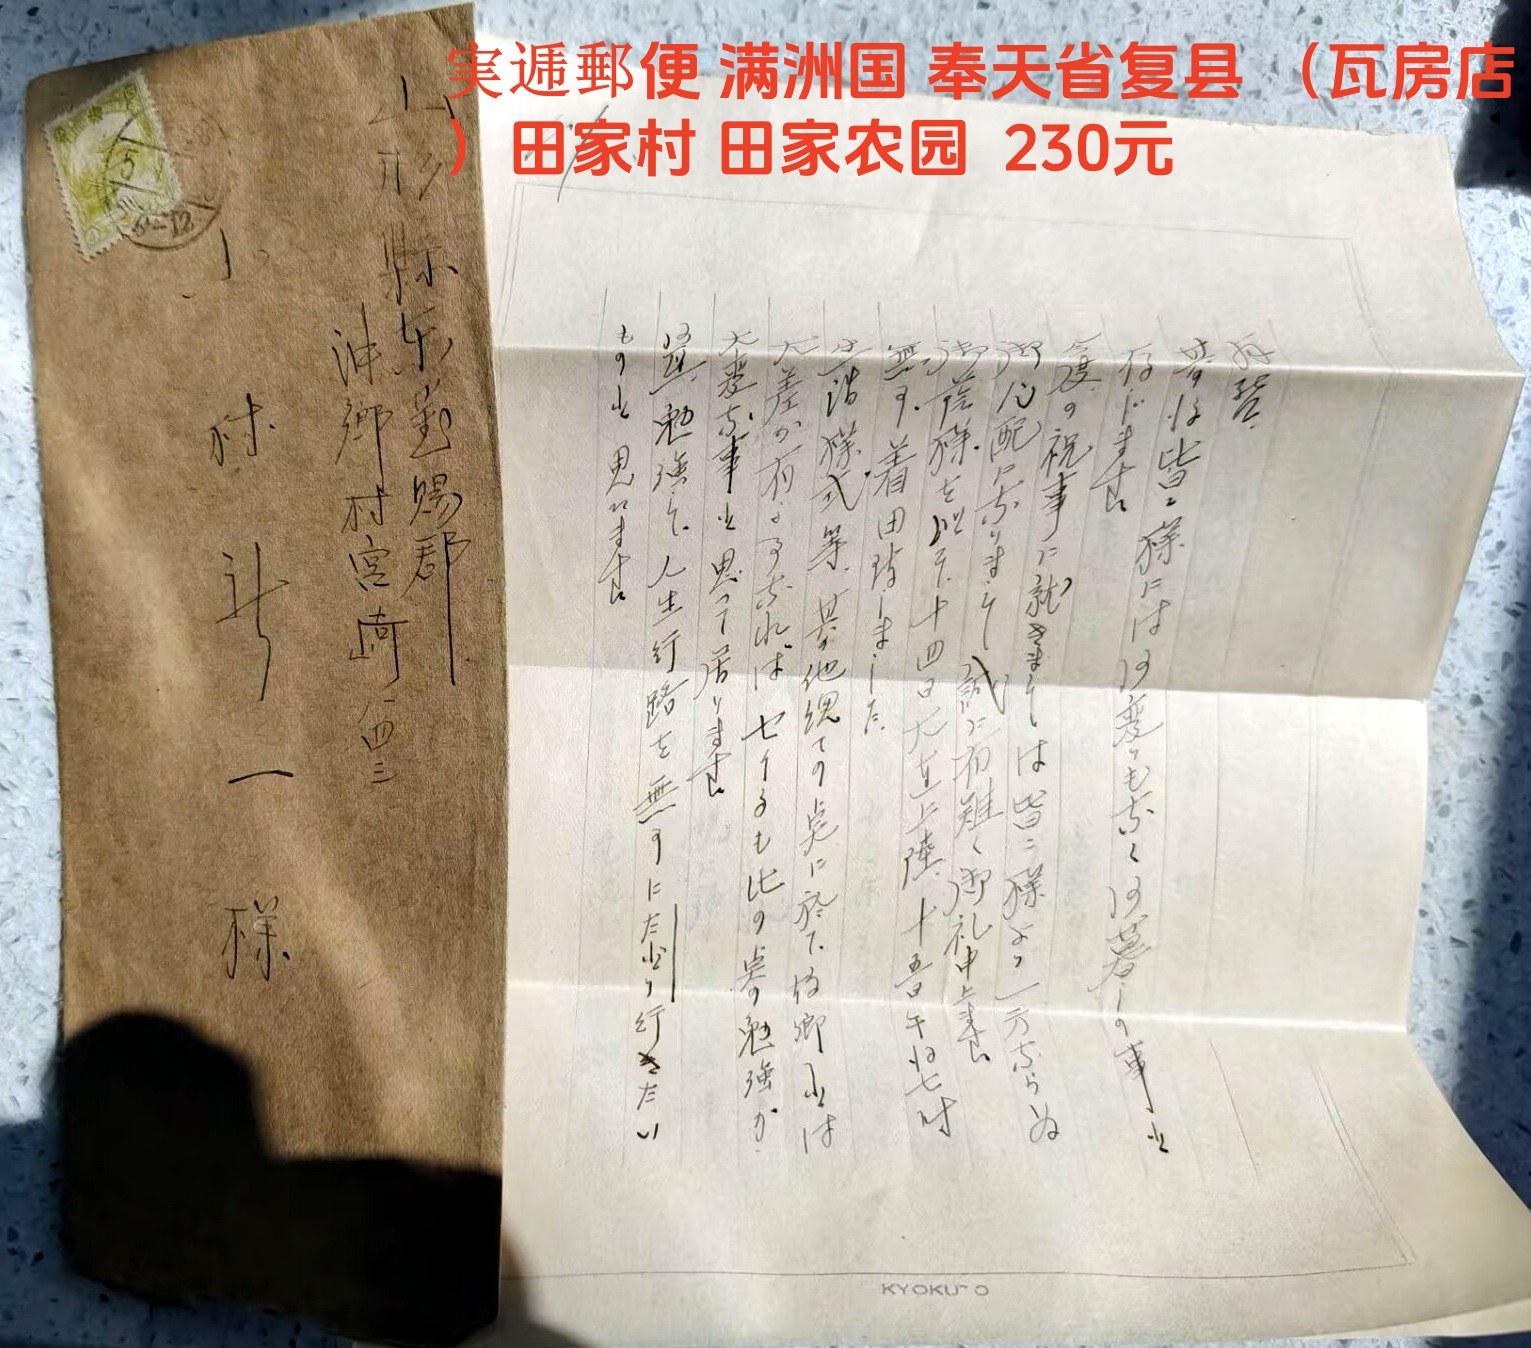 実逓郵便 满洲国 奉天省复县 （瓦房店
）田家村 田家农园 230元
山形縣东置賜郡
沖郷村宮崎一四三
小村新一様
拝啓
其の後皆々様には御変りも無く御暮しの事と
存じます
今度の祝事に就きましては皆々様より一方ならぬ
御心配になりまして誠に有難く御礼申上ます
御蔭様を以て十四日大連上陸 十五日午後七时
無事着田致しました
生活様式等其の他總ての点に於て故郷とは
大差が有る
大変な事と思って居ります
勉強して人生行路を無事に
ものと思います
KYOKUTO